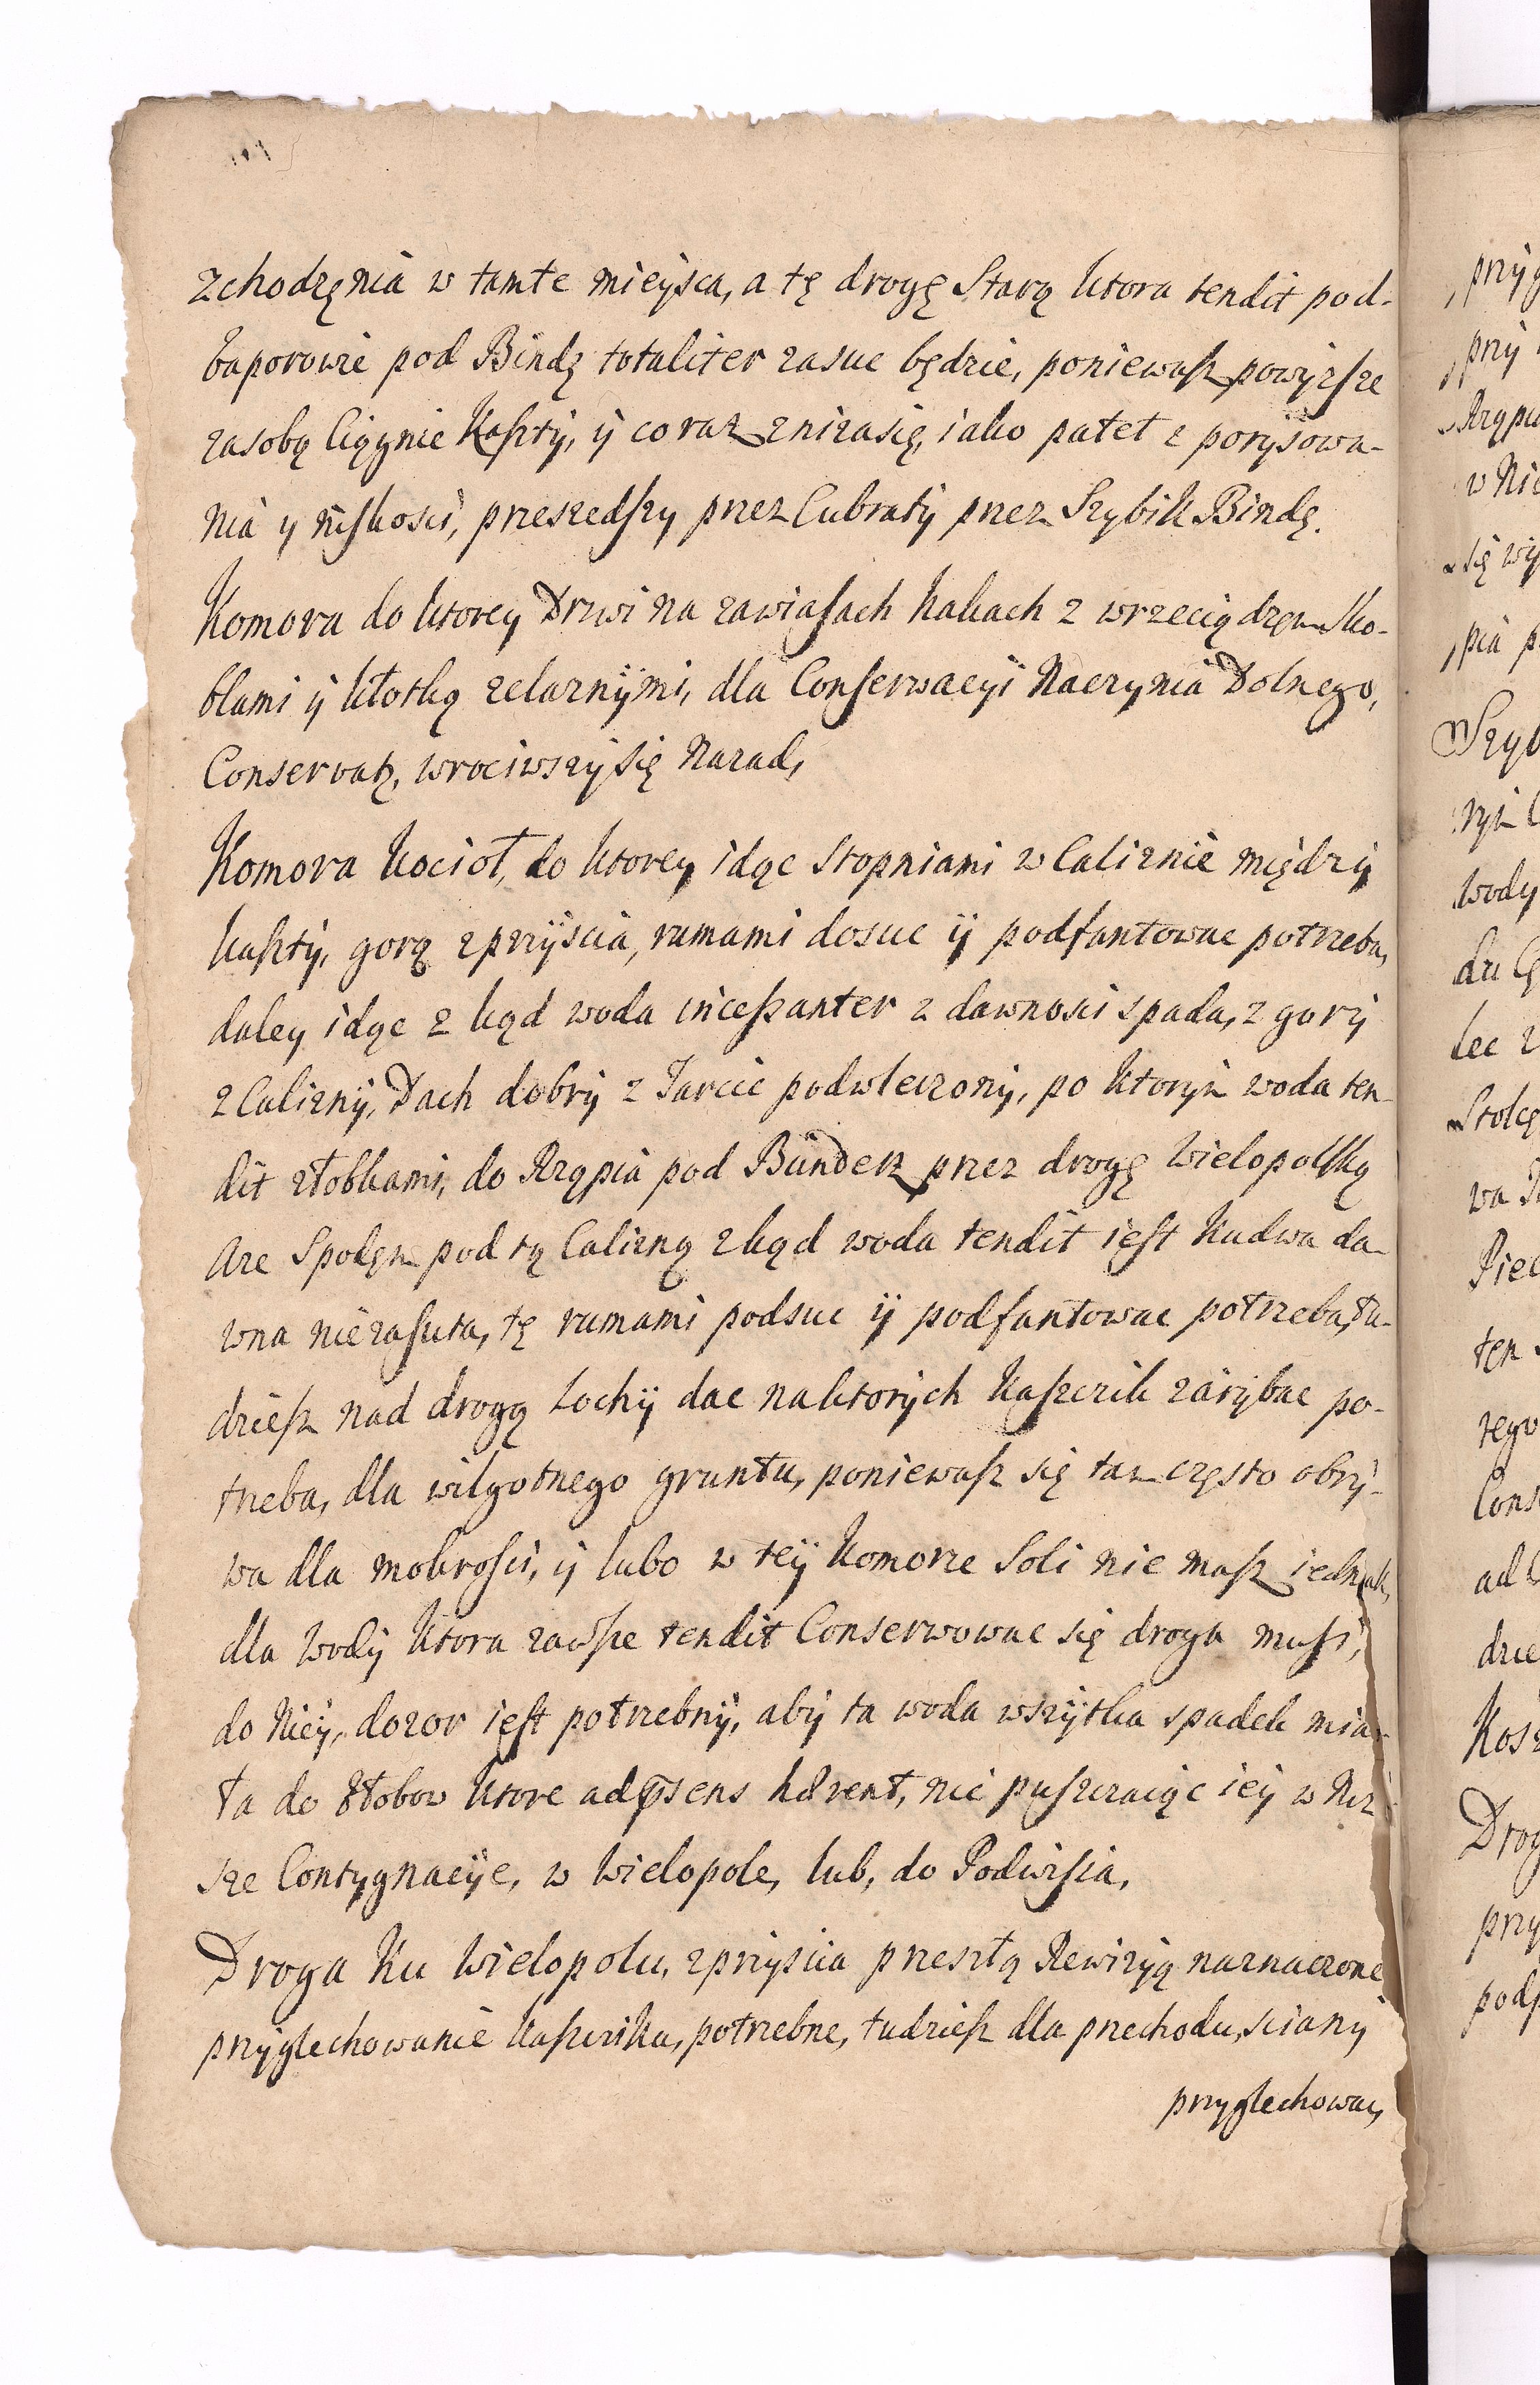 zchodzęnia w tamte mieysca, a tę drogę Starą ktora tendit pod-
baporowie pod Bindę totaliter zasuc będzie, poniewasz powyzsze
zasobą Ciągnie Kaszty, ÿ coraz znizasię, iako patet z porysowa-
nia y niskosci, przeszedszy przez Cubraty przez Szybik Bindę.
Komora do ktorey Drzwi na zawiasach hakach z wrzeciądzem Sko-
blami ÿ kłotką zelaznÿmi, dla Conserwacyi Naczynia Dolnego,
Conservatz, wrociwszy się Nazad,
Komora kocioł, do ktorey idąc Stopniami w Caliznie między
kaszty, gorą zprzÿscia, rumami dosuc ÿ podfantowac potrzeba,
daley idąc z kąd woda incessanter z dawnosci spada, z gory
z Calizny, Dach dobry z Tarcic podwleczony, po ktorym woda ten-
dit złobkami, do Rząpia pod Bunderz przez drogę Wielopolską
Are Spodęm pod tą Calizną zkąd woda tendit iest Kudwa da-
wna niezasuta, tę rumami podsuc ÿ podfantowac potrzeba, tu-
dziesz nad drogą Lochÿ dac naktorych Kaszczik zarąbac po-
trzeba, dla wilgotnego gruntu, poniewasz się tam często obry-
wa dla mokrosci, ÿ lubo w teÿ Komorze Soli nie masz iednak,
dla Wody ktora zawsze tendit Conserwowac się droga musi,
do Niey, dozor iest potrzebny, aby ta woda wszytka spadek mia-
ła do złobow ktore ad psens hærent, nie puszczaiąc iey w Niz
sze Contygnacÿe, w Wielopole, lub, do Podwisia,
Droga Ku Wielopolu, zprzyscia przeszłą Rewizyą naznaczone
przyglechowanie kaszczika, potrzebne, tudziesz dla przechodu, sciany
przyglechowac,